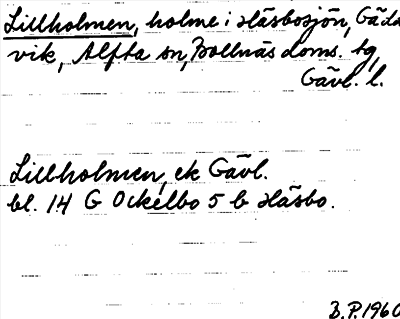 Lillholmen, holme i Häsbosjön, Gäds
vik, Alfta sn, Bollnäs doms. tg,
Gävl. l.
Lillholmen, ek Gävl.
bl. 14 G Ockelbo 5 b Häsbo.
B.P. 1960